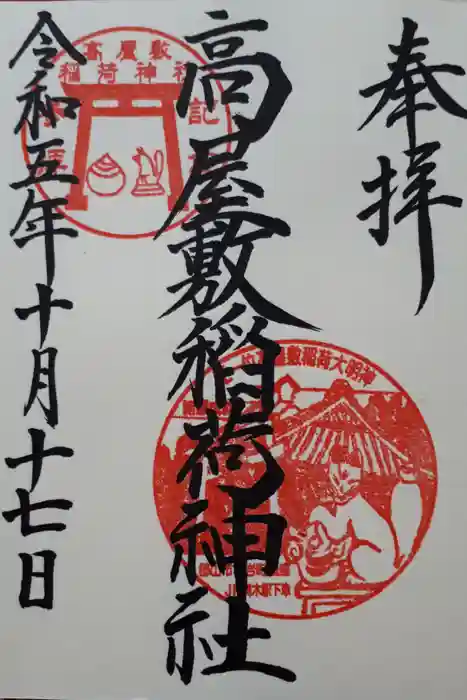 奉拝
高屋敷稲荷神社
令和五年十月十七日
高屋敷
稲荷神社
記
敷稲荷大明神
下車